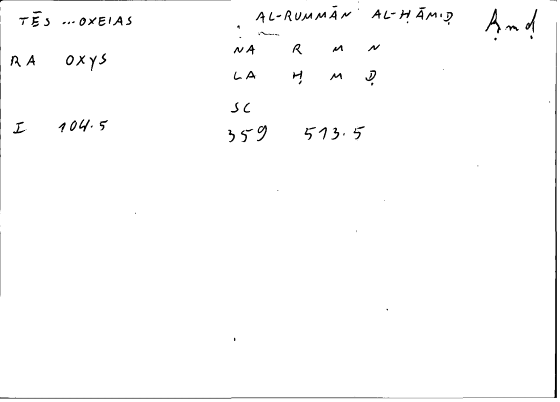 TĒS ...OXEIAS AL-RUMMĀN AL-ḤĀMIḌ Ḥmḍ
NA R M N
RA OXYS
LA Ḥ M Ḍ
SC
I 104.5
359 513.5